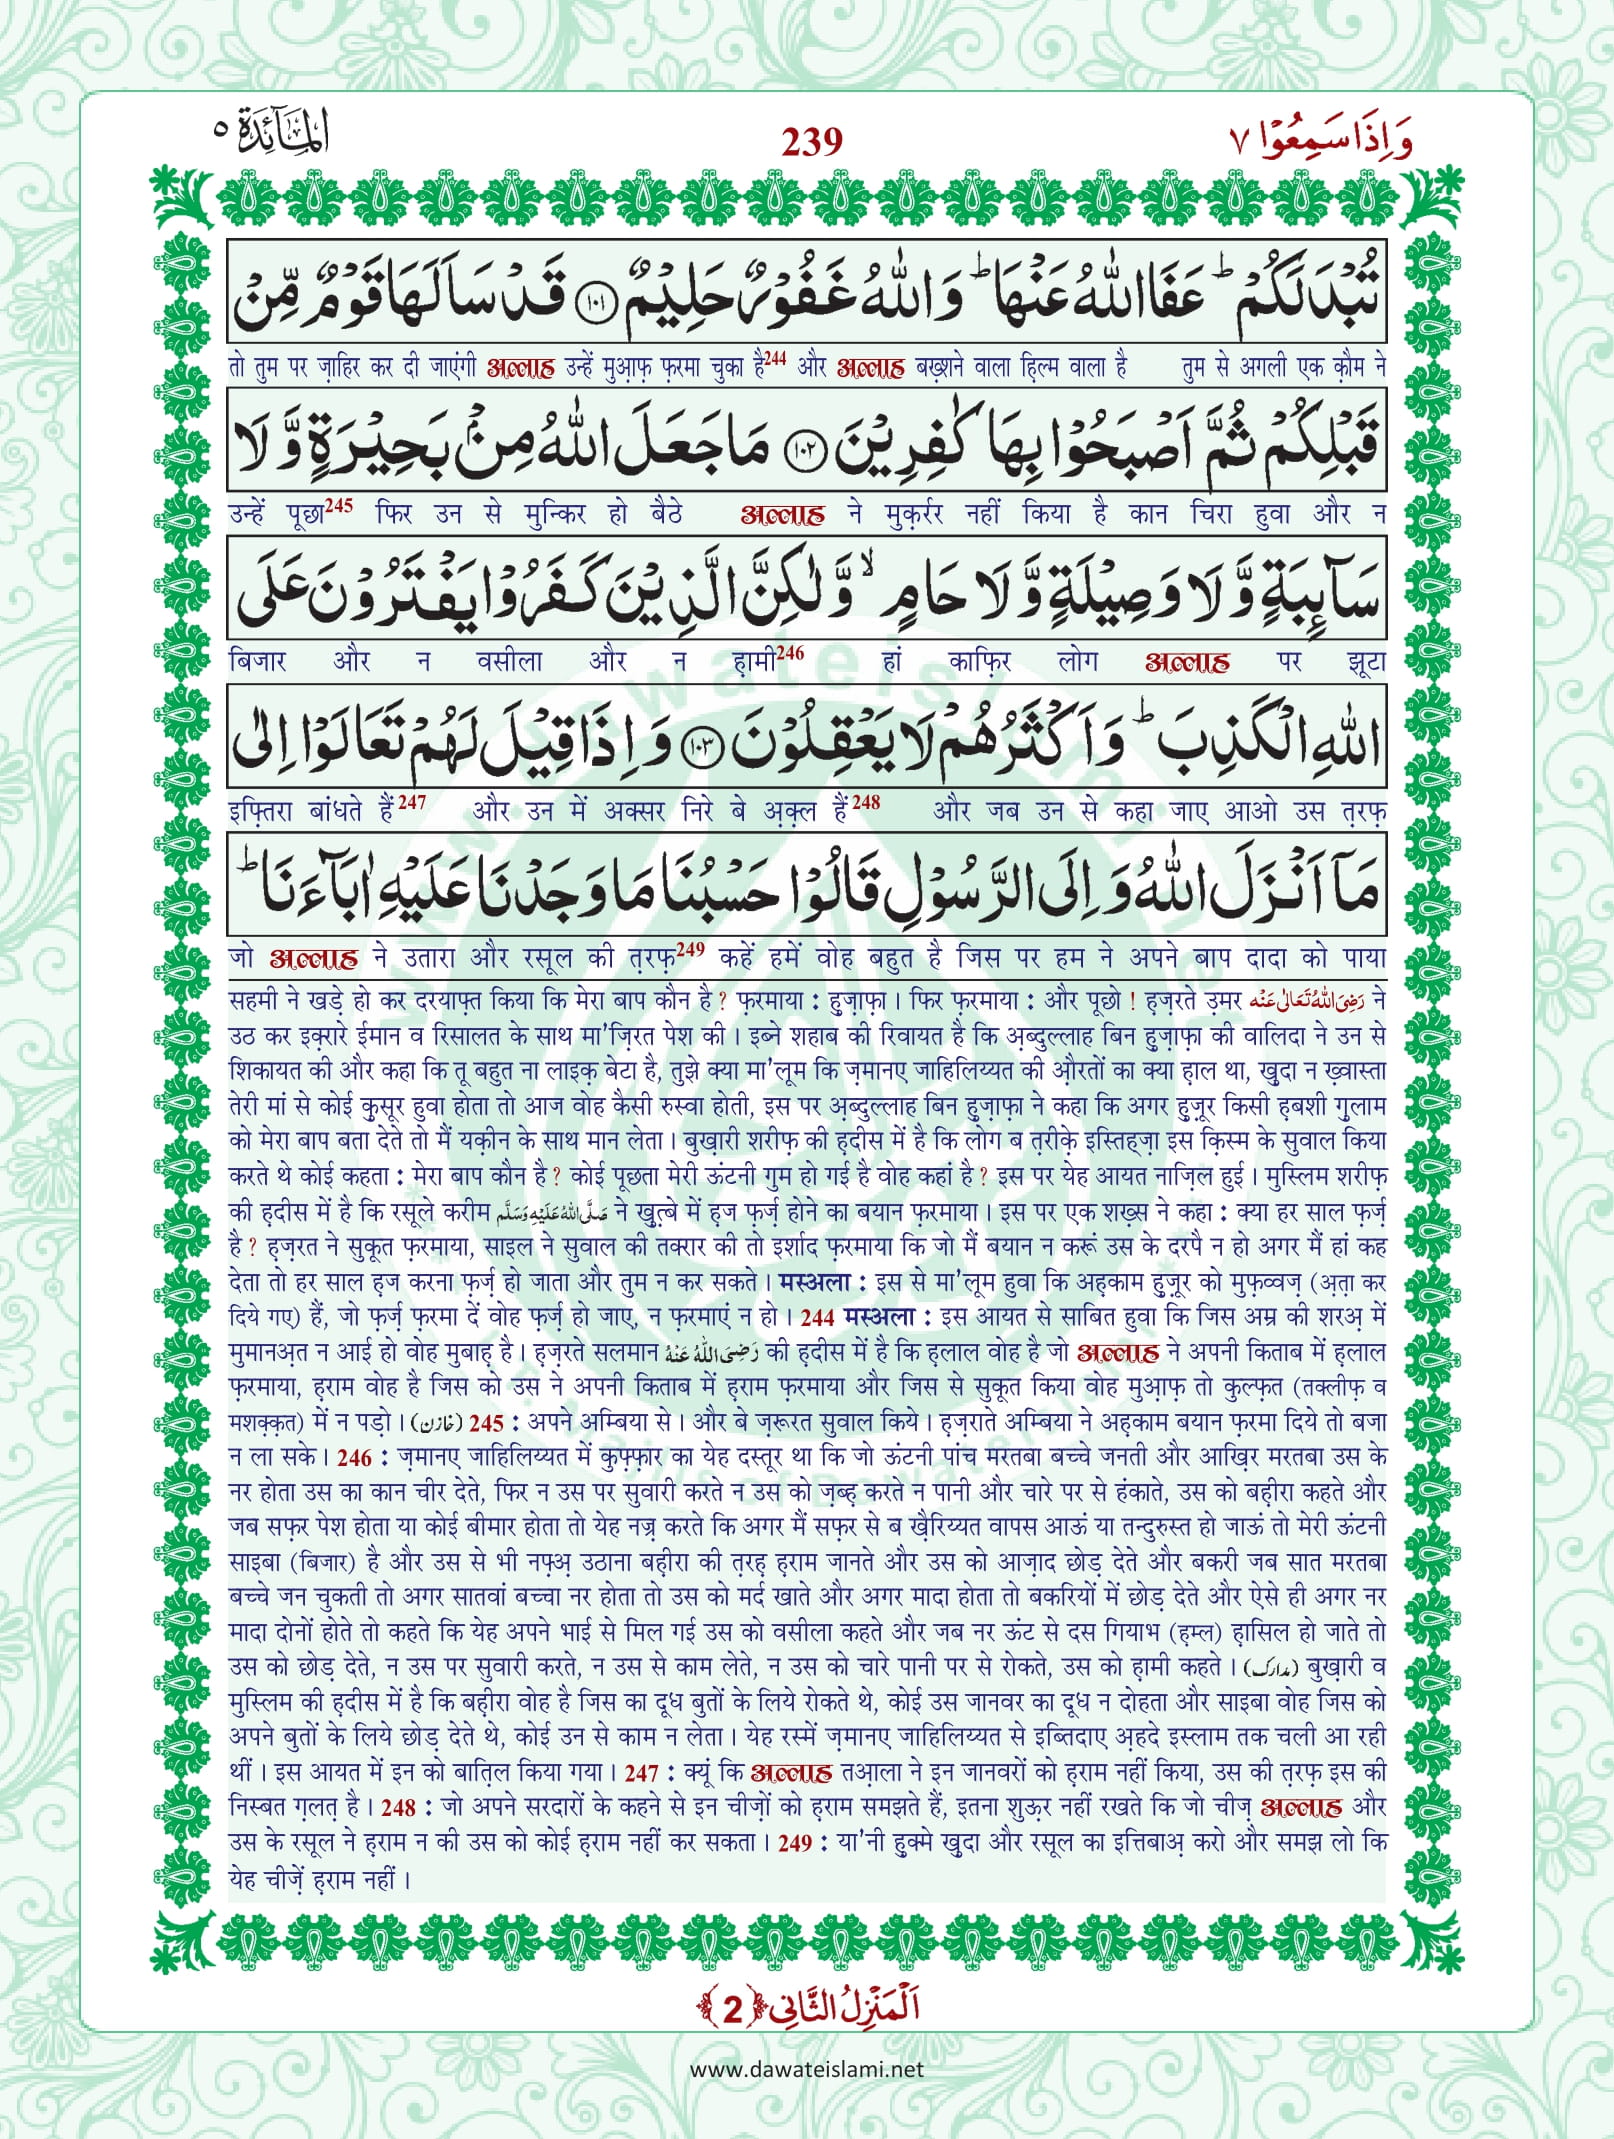 المآئدة ٥
239
وَاِذَا سَمِعُوْا ٧
تُبْدَ لَكُمْ ؕ عَفَا اللّٰهُ عَنْهَا ؕ وَ اللّٰهُ غَفُوْرٌ حَلِیْمٌ ﴿۱۰۱﴾ قَدْ سَاَلَهَا قَوْمٌ مِّنْ
तो तुम पर ज़ाहिर कर दी जाएंगी अल्लाह उन्हें मुआ़फ़ फ़रमा चुका है244 और अल्लाह बख़्शने वाला हि़ल्म वाला है तुम से अगली एक क़ौम ने
قَبْلِكُمْ ثُمَّ اَصْبَحُوْا بِهَا كٰفِرِیْنَ ﴿۱۰۲﴾ مَا جَعَلَ اللّٰهُ مِنْۢ بَحِیْرَةٍ وَّ لَا
उन्हें पूछा245 फिर उन से मुन्किर हो बैठे अल्लाह ने मुक़र्रर नहीं किया है कान चिरा हुवा और न
سَآىِٕبَةٍ وَّ لَا وَصِیْلَةٍ وَّ لَا حَامٍ ۙ وَّ لٰكِنَّ الَّذِیْنَ كَفَرُوْا یَفْتَرُوْنَ عَلَى
बिजार और न वसीला और न ह़ामी246 हां काफ़िर लोग अल्लाह पर झूटा
اللّٰهِ الْكَذِبَ ؕ وَ اَكْثَرُهُمْ لَا یَعْقِلُوْنَ ﴿۱۰۳﴾ وَ اِذَا قِیْلَ لَهُمْ تَعَالَوْا اِلٰى
इफ़्तिरा बांधते हैं247 और उन में अक्सर निरे बे अ़क़्ल हैं248 और जब उन से कहा जाए आओ उस त़रफ़
مَاۤ اَنْزَلَ اللّٰهُ وَ اِلَى الرَّسُوْلِ قَالُوْا حَسْبُنَا مَا وَجَدْنَا عَلَیْهِ اٰبَآءَنَا ؕ
जो अल्लाह ने उतारा और रसूल की त़रफ़249 कहें हमें वोह बहुत है जिस पर हम ने अपने बाप दादा को पाया
सहमी ने खड़े हो कर दरयाफ़्त किया कि मेरा बाप कौन है ? फ़रमाया : हुज़ाफ़ा । फिर फ़रमाया : और पूछो ! ह़ज़रते उ़मर رَضِیَ اللّٰهُ تَعَالٰی عَنْه ने
उठ कर इक़्रारे ईमान व रिसालत के साथ मा'ज़िरत पेश की । इब्ने शहाब की रिवायत है कि अ़ब्दुल्लाह बिन हुज़ाफ़ा की वालिदा ने उन से
शिकायत की और कहा कि तू बहुत ना लाइक़ बेटा है, तुझे क्या मा'लूम कि ज़मानए जाहिलिय्यत की औ़रतों का क्या ह़ाल था, खुदा न ख़्वास्ता
तेरी मां से कोई कु़सूर हुवा होता तो आज वोह कैसी रुस्वा होती, इस पर अ़ब्दुल्लाह बिन हुज़ाफ़ा ने कहा कि अगर हुज़ूर किसी ह़बशी गु़लाम
को मेरा बाप बता देते तो मैं यक़ीन के साथ मान लेता । बुख़ारी शरीफ़ की ह़दीस में है कि लोग ब त़रीके़ इस्तिहज़ा इस क़िस्म के सुवाल किया
करते थे कोई कहता : मेरा बाप कौन है ? कोई पूछता मेरी ऊंटनी गुम हो गई है वोह कहां है ? इस पर येह आयत नाज़िल हुई । मुस्लिम शरीफ़
की ह़दीस में है कि रसूले करीम صَلَّی اللّٰهُ عَلَیْهِ وَسَلَّم ने खु़त़्बे में ह़ज फ़र्ज़ होने का बयान फ़रमाया । इस पर एक शख़्स ने कहा : क्या हर साल फ़र्ज़
है ? ह़ज़रत ने सुकूत फ़रमाया, साइल ने सुवाल की तक्रार की तो इर्शाद फ़रमाया कि जो मैं बयान न करूं उस के दरपै न हो अगर मैं हां कह
देता तो हर साल ह़ज करना फ़र्ज़ हो जाता और तुम न कर सकते । मस्अला : इस से मा'लूम हुवा कि अह़काम हुज़ूर को मुफ़व्वज़ (अ़त़ा कर
दिये गए) हैं, जो फ़र्ज़ फ़रमा दें वोह फ़र्ज़ हो जाए, न फ़रमाएं न हो । 244 मस्अला : इस आयत से साबित हुवा कि जिस अम्र की शरअ़ में
मुमानअ़त न आई हो वोह मुबाह़ है । ह़ज़रते सलमान رَضِیَ اللّٰهُ عَنْهُ की ह़दीस में है कि ह़लाल वोह है जो अल्लाह ने अपनी किताब में ह़लाल
फ़रमाया, ह़राम वोह है जिस को उस ने अपनी किताब में ह़राम फ़रमाया और जिस से सुकूत किया वोह मुआ़फ़ तो कुल्फ़त (तक्लीफ़ व
मशक़्क़त) में न पड़ो । (خازن) 245 : अपने अम्बिया से । और बे ज़रूरत सुवाल किये । ह़ज़राते अम्बिया ने अह़काम बयान फ़रमा दिये तो बजा
न ला सके । 246 : ज़मानए जाहिलिय्यत में कुफ़्फ़ार का येह दस्तूर था कि जो ऊंटनी पांच मरतबा बच्चे जनती और आख़िर मरतबा उस के
नर होता उस का कान चीर देते, फिर न उस पर सुवारी करते न उस को ज़ब्ह़ करते न पानी और चारे पर से हंकाते, उस को बह़ीरा कहते और
जब सफ़र पेश होता या कोई बीमार होता तो येह नज़्र करते कि अगर मैं सफ़र से ब ख़ैरिय्यत वापस आऊं या तन्दुरुस्त हो जाऊं तो मेरी ऊंटनी
साइबा (बिजार) है और उस से भी नफ़्अ़ उठाना बह़ीरा की त़रह़ ह़राम जानते और उस को आज़ाद छोड़ देते और बकरी जब सात मरतबा
बच्चे जन चुकती तो अगर सातवां बच्चा नर होता तो उस को मर्द खाते और अगर मादा होता तो बकरियों में छोड़ देते और ऐसे ही अगर नर
मादा दोनों होते तो कहते कि येह अपने भाई से मिल गई उस को वसीला कहते और जब नर ऊंट से दस गियाभ (ह़म्ल) ह़ासिल हो जाते तो
उस को छोड़ देते, न उस पर सुवारी करते, न उस से काम लेते, न उस को चारे पानी पर से रोकते, उस को ह़ामी कहते । (مدارک) बुख़ारी व
मुस्लिम की ह़दीस में है कि बह़ीरा वोह है जिस का दूध बुतों के लिये रोकते थे, कोई उस जानवर का दूध न दोहता और साइबा वोह जिस को
अपने बुतों के लिये छोड़ देते थे, कोई उन से काम न लेता । येह रस्में ज़मानए जाहिलिय्यत से इब्तिदाए अ़हदे इस्लाम तक चली आ रही
थीं । इस आयत में इन को बात़िल किया गया । 247 : क्यूं कि अल्लाह तआ़ला ने इन जानवरों को ह़राम नहीं किया, उस की त़रफ़ इस की
निस्बत ग़लत़ है । 248 : जो अपने सरदारों के कहने से इन चीज़ों को ह़राम समझते हैं, इतना शुऊ़र नहीं रखते कि जो चीज़ अल्लाह और
उस के रसूल ने ह़राम न की उस को कोई ह़राम नहीं कर सकता । 249 : या'नी हुक्मे खु़दा और रसूल का इत्तिबाअ़ करो और समझ लो कि
येह चीज़ें ह़राम नहीं ।
اَلْمَنْزِلُ الثَّانِی ﴿2﴾
www.dawateislami.net